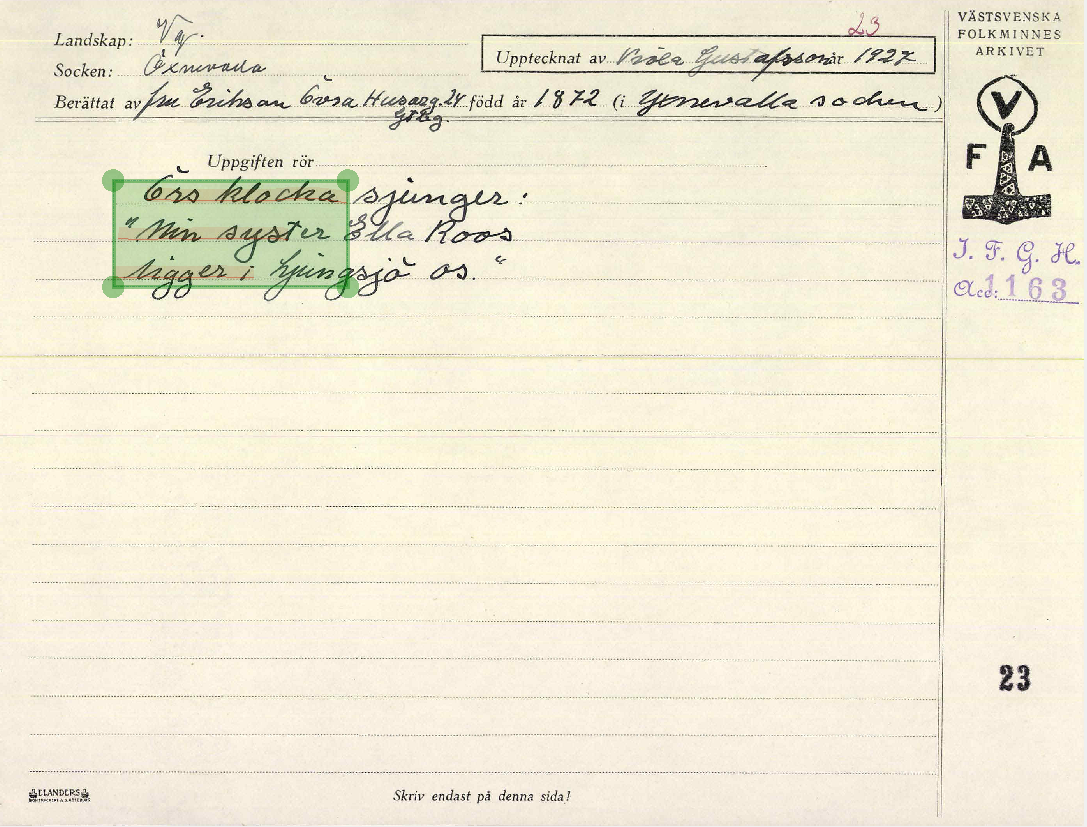 23
VÄSTSVENSKA
FOLKMINNES
ARKIVET
Landskap: Vg.
Upptecknat av Viola Gustafsson år 1927
Socken: Öxnevalla
Berättat av fru Erikson Övra Husarg. 24 född år 1872 (i Öxnevalla socken)
Gtbg.
V
F A
Uppgiften rör
Örs klocka sjunger:
"Min syster Ella Roos
ligger i Ljungsjö os."
I. F. G. H.
Acc: 1163
23
ELANDERS
Skriv endast på denna sida!